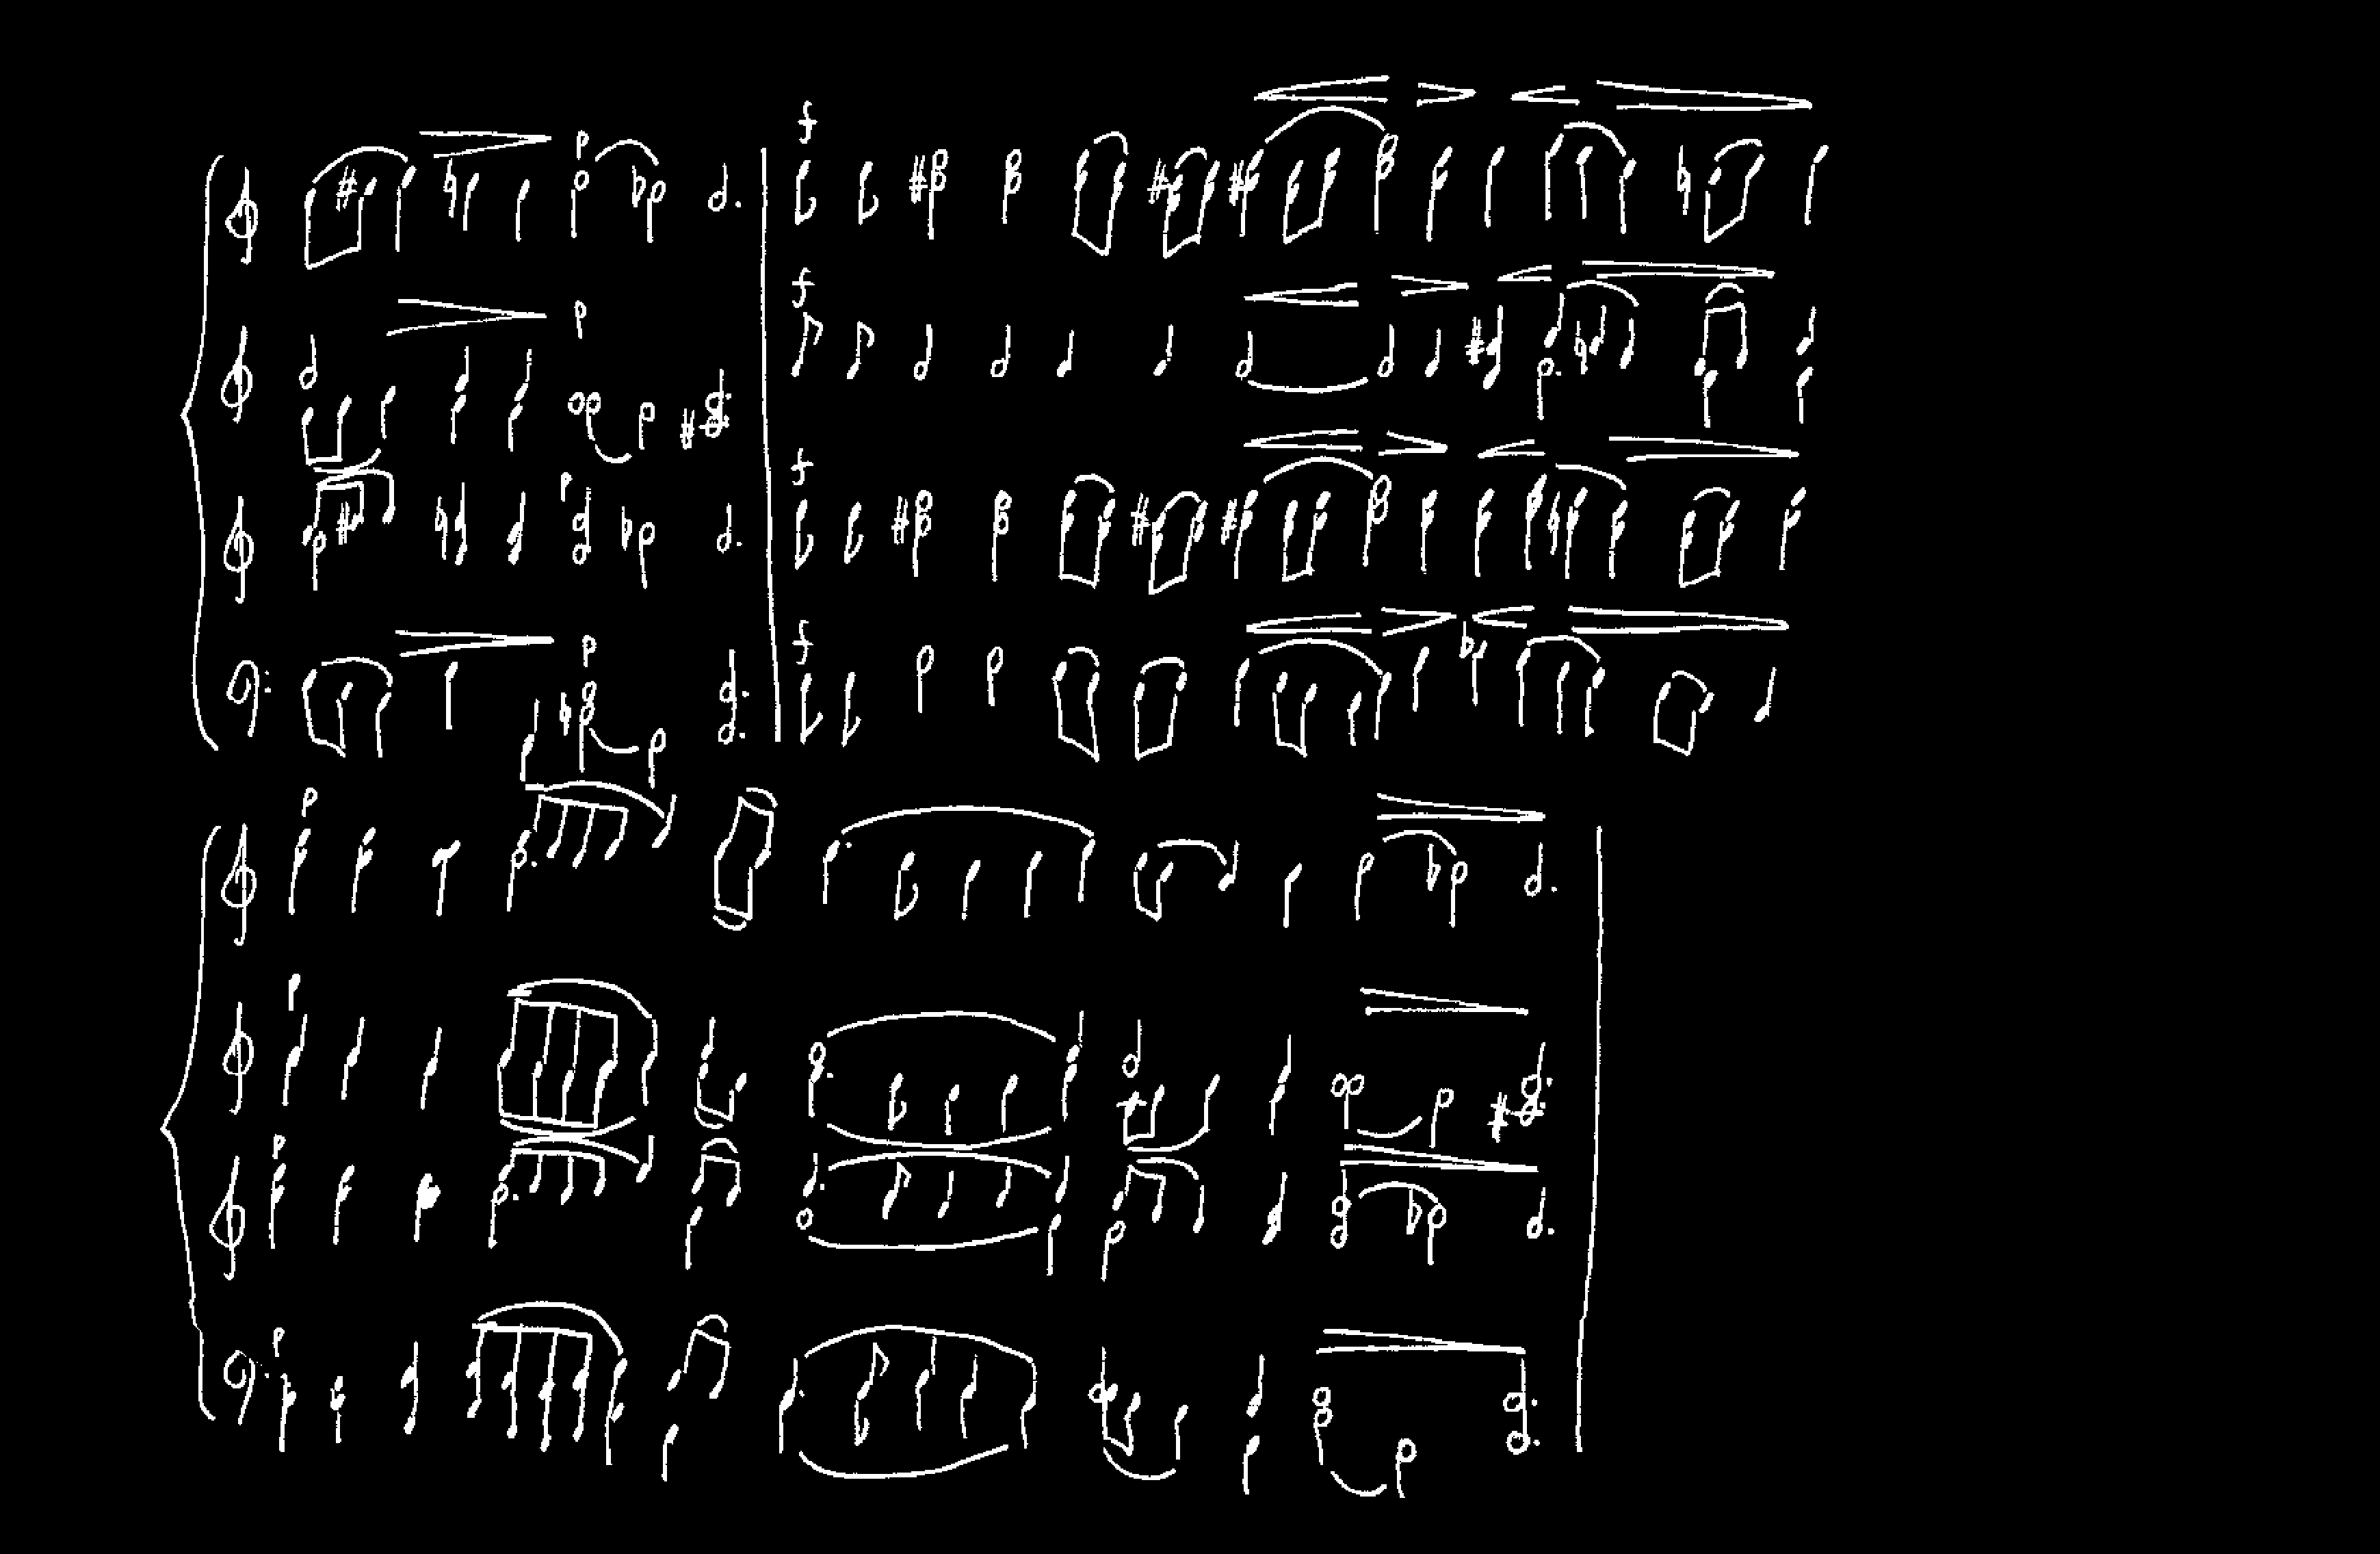 f
p
f
p
f
p
f
p
p
p
p
p